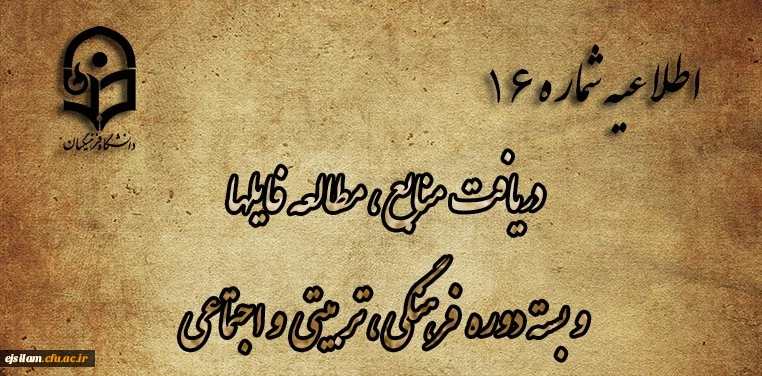 اطلاعیه شماره ۱۶
دانشگاه فرهنگیان
دریافت منابع، مطالعه فایلها
و بسته دوره فرهنگی، تربیتی و اجتماعی
ejsilam.cfu.ac.ir